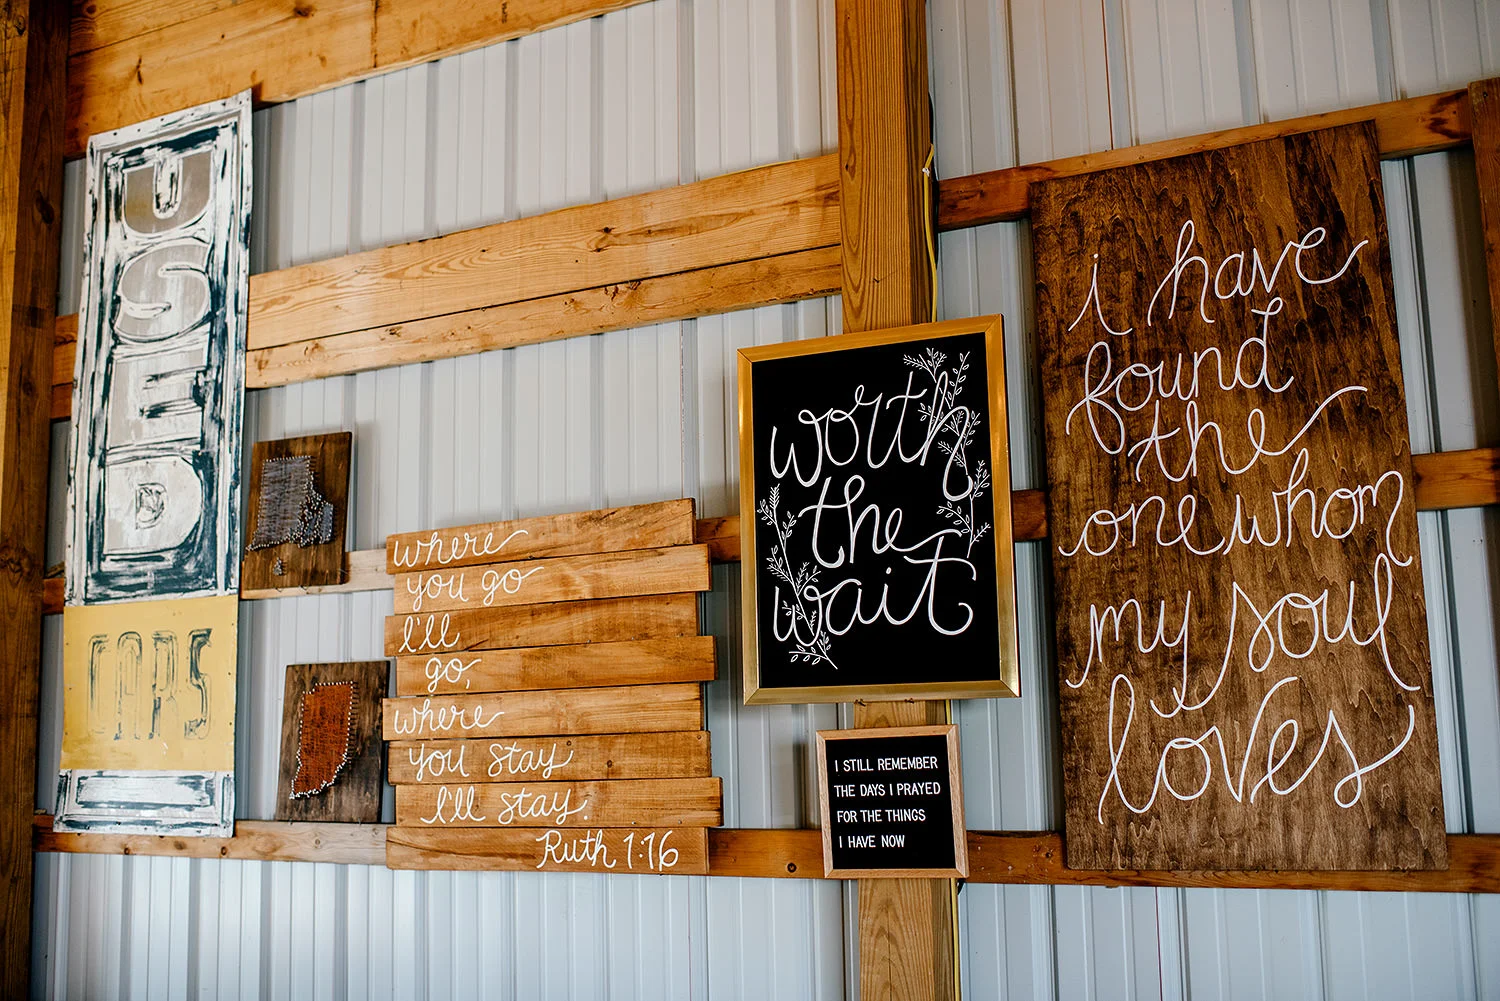 USED
CARS
where
you go
I'll
go,
where
you stay
I'll stay.
Ruth 1:16
worth
the
wait
I STILL REMEMBER
THE DAYS I PRAYED
FOR THE THINGS
I HAVE NOW
i have
found
the
one whom
my soul
loves